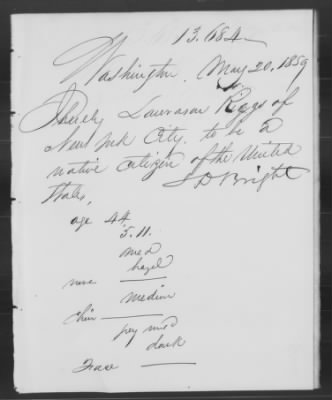 13.684
Washington, May 20, 1859
Lawrason Riggs of
New York City, to be a
native citizen of the United
States,
S D Bright
age 44
5.11.
med
hazel
nose
medium
chin
med
dark